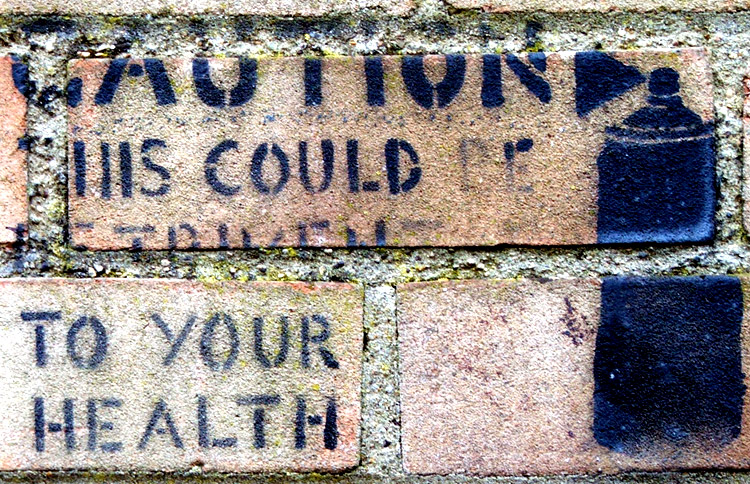 CAUTION
THIS COULD BE
DETRIMENTAL
TO YOUR
HEALTH